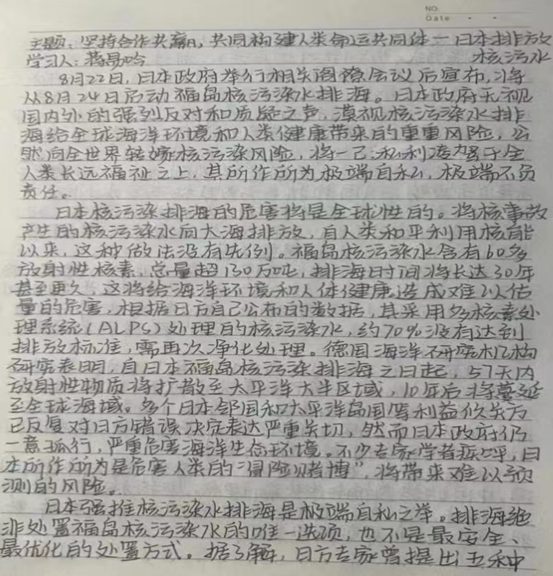 NO.
Date
主题：坚持合作共赢，共同构建人类命运共同体——日本排放
核污水
学习人：蒋易晗
8月22日，日本政府举行相关阁僚会议后宣布，将
从8月24日启动福岛核污染水排海。日本政府无视
国内外的强烈反对和质疑之声，漠视核污染水排
海给全球海洋环境和人类健康带来的重重风险，公
然向全世界转嫁核污染风险，将一己私利凌驾于全
人类长远福祉之上，其所作所为极端自私，极端不负
责任。
日本核污染排海的危害将是全球性的。将核事故
产生的核污染水向大海排放，自人类和平利用核能
以来，这种做法没有先例。福岛核污染水含有60多
放射性核素，总量超130万吨，排海时间将长达30年
甚至更久，这将给海洋环境和人体健康造成难以估
量的危害，根据日方自己公布的数据，其采用多核素处
理系统(ALPS)处理的核污染水，约70%没有达到
排放标准，需再次净化处理。德国海洋研究机构
研究表明，自日本福岛核污染水排海之日起，57天内
放射性物质将扩散至太平洋大半区域，10年后将蔓延
至全球海域。多个日本邻国和太平洋岛国等利益攸关方
已反复对日方错误决定表达严重关切，然而日本政府仍
一意孤行，严重危害海洋生态环境。不少专家学者振呼，日
本所作所为是危害人类的“冒险赌博”，将带来难以预
测的风险。
日本强推核污染水排海是极端自私之举。排海绝
非处置福岛核污染水的唯一选项，也不是最安全、
最优化的处置方式。据了解，日方专家曾提出五种